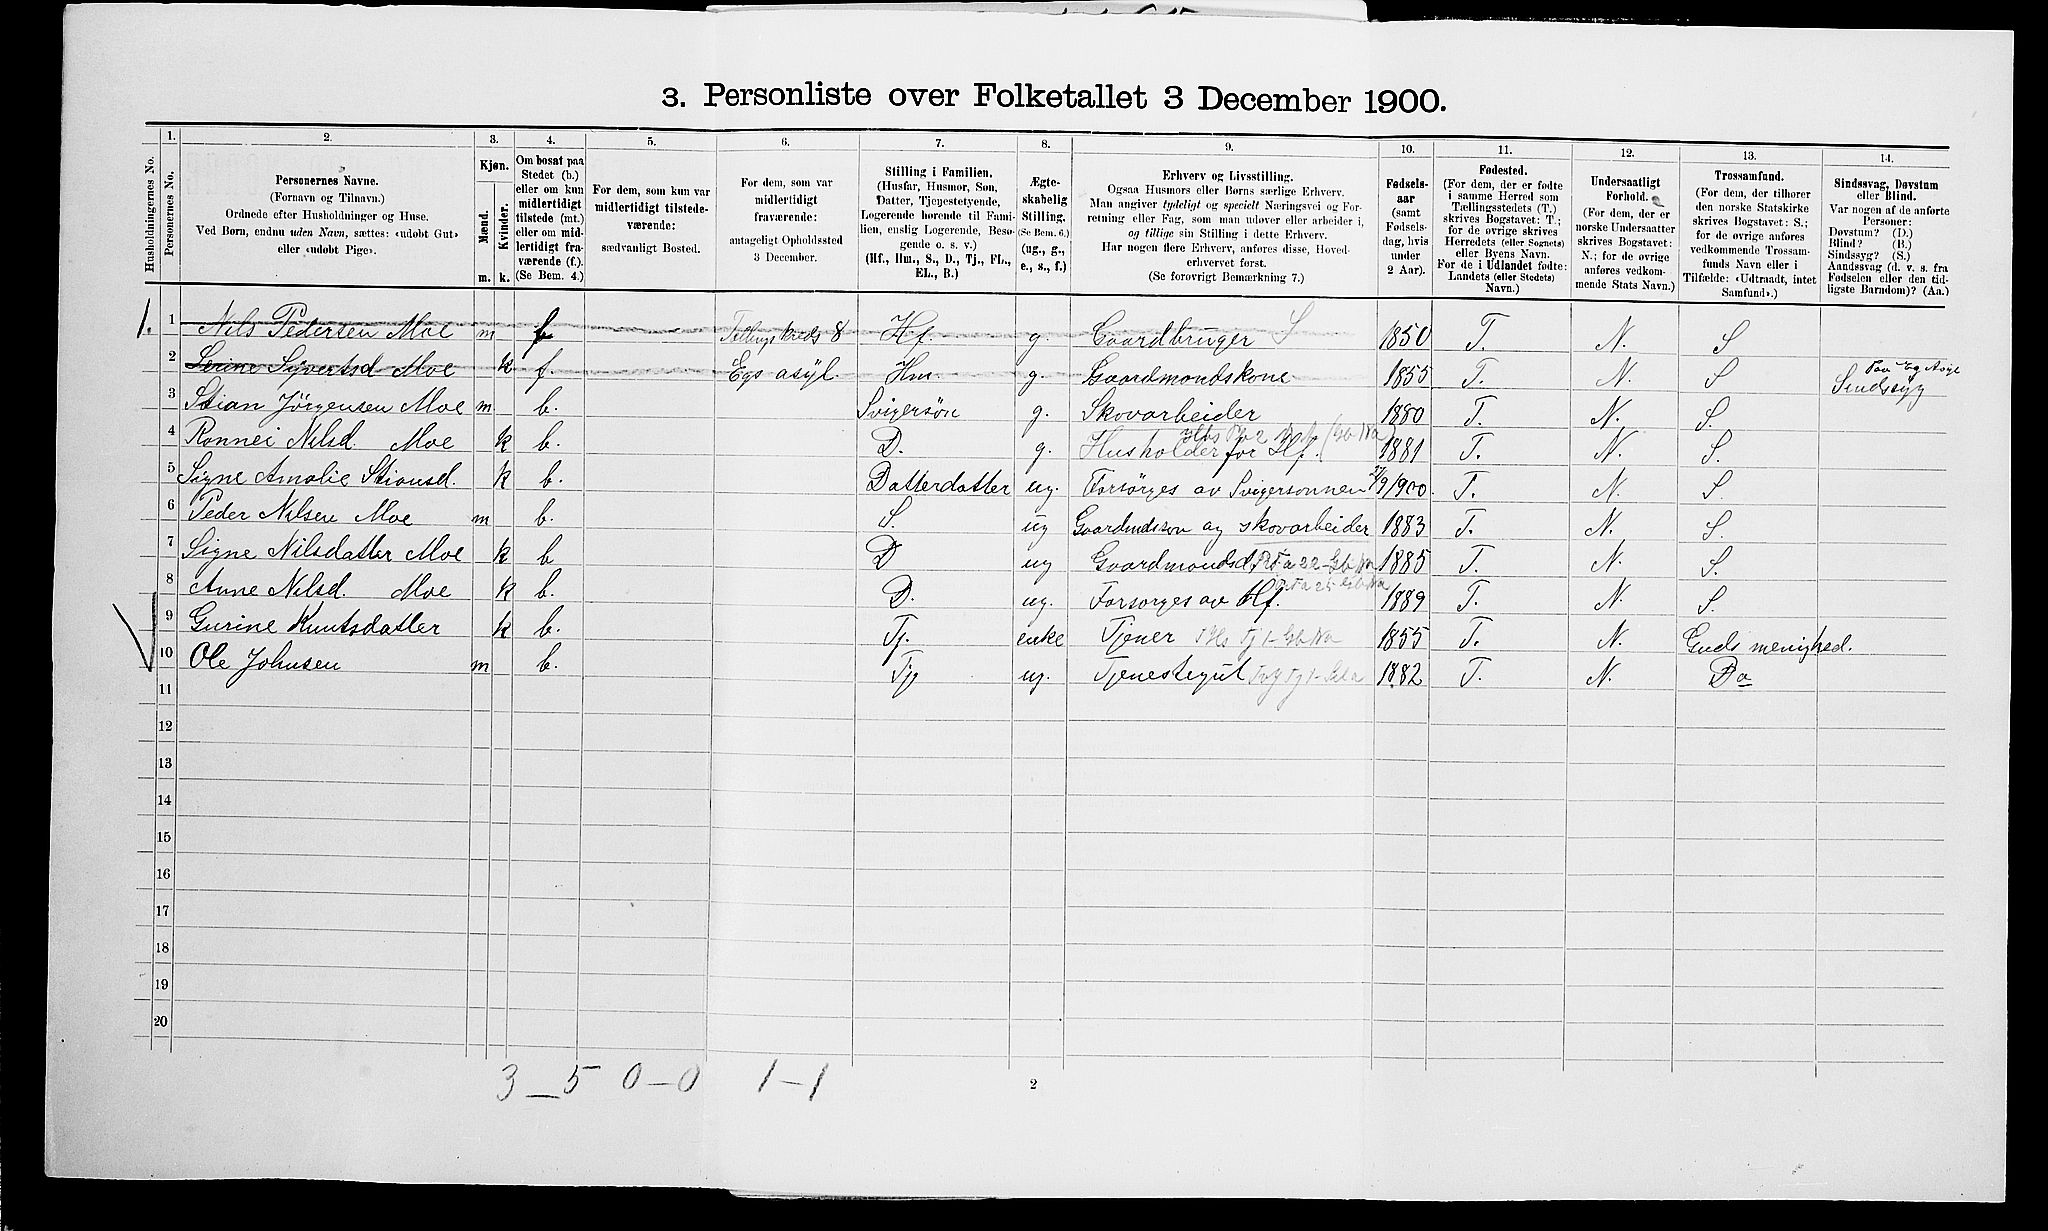 3. Personliste over Folketallet 3 December 1900.
Husholdningernes No.
1. Personernes No.
2. Personernes Navne.
(Fornavn og Tilnavn.)
Ordnede efter Husholdninger og Huse.
Ved Børn, endnu uden Navn, sættes: «udøbt Gut»
eller «udøbt Pige».
3. Kjøn.
Mænd. Kvinder.
m. k.
4. Om bosat paa
Stedet (b.)
eller om kun
midlertidigt
tilstede (mt.)
eller om mid-
lertidigt fra-
værende (f.).
(Se Bem. 4.)
5. For dem, som kun var
midlertidigt tilstede-
værende:
sædvanligt Bosted.
6. For dem, som var
midlertidigt
fraværende:
antageligt Opholdssted
3 December.
7. Stilling i Familien.
(Husfar, Husmor, Søn,
Datter, Tjenestetyende,
Logerende hørende til Fami-
lien, enslig Logerende, Besø-
gende o. s. v.)
(Hf., Hm., S., D., Tj., FL.,
EL., B.)
8. Ægte-
skabelig
Stilling.
(Se Bem. 6.)
(ug., g.,
e., s., f.)
9. Erhverv og Livsstilling.
Ogsaa Husmors eller Børns særlige Erhverv.
Man angiver tydeligt og specielt Næringsvei og For-
retning eller Fag, som man udøver eller arbeider i,
og tillige sin Stilling i dette Erhverv.
Har nogen flere Erhverv, anføres disse, Hoved-
erhvervet først.
(Se forøvrigt Bemærkning 7.)
10. Fødsels-
aar
(samt
Fødsels-
dag, hvis
under
2 Aar).
11. Fødested.
(For dem, der er fødte
i samme Herred som
Tællingsstedets (T.)
skrives Bogstavet: T.;
for de øvrige skrives
Herredets (eller Sognets)
eller Byens Navn.
For de i Udlandet fødte:
Landets (eller Stedets)
Navn.)
12. Undersaatligt
Forhold.
(For dem, der er
norske Undersaatter
skrives Bogstavet:
N.; for de øvrige
anføres vedkom-
mende Stats Navn.)
13. Trossamfund.
(For dem, der tilhører
den norske Statskirke
skrives Bogstavet: S.;
for de øvrige anføres
vedkommende Trossam-
funds Navn eller i
Tilfælde: «Udtraadt, intet
Samfund».)
14. Sindssvag, Døvstum
eller Blind.
Var nogen af de anførte
Personer:
Døvstum? (D.)
Blind? (B.)
Sindssyg? (S.)
Aandssvag (d. v. s. fra
Fødselen eller den tid-
ligste Barndom)? (Aa.)
1. 1 Nils Pedersen Moe m f Tellingskreds 8 Hf. g. Gaardbruger S 1850 T. N. S
2 Serine Syvertsd Moe k f. Egs asyl. Hm. g. Gaardmandskone 1855 T. N. S Sindssyg
3 Stian Jörgensen Moe m b. Svigersøn g. Skovarbeider 1880 T. N. S.
4 Ronnei Nilsd. Moe k b. D. g. Husholder for Hf. 1881 T. N. S.
5 Signe Amalie Stiansd. k b. Datterdatter ug. Forsörges av Svigersonnen 27/9 1900. T. N. S.
6 Peder Nilsen Moe m b. S. ug Gaardmdssøn og skovarbeider 1883 T. N. S.
7 Signe Nilsdatter Moe k b D ug Gaardmandsd. 1885 T. N. S.
8 Anne Nilsd. Moe k b. D. ug. Forsorges av Hf. 1889 T. N. S.
9 Gurine Knutsdatter k b. Tj. enke Tjener 1855 T. N. Guds menighed.
10 Ole Johnsen m b. Tj ug. Tjenestegut 1882 T. N. Do
11
12
13
14
15
16
17
18
19
20
3 — 5 0 — 0 1 — 1
2